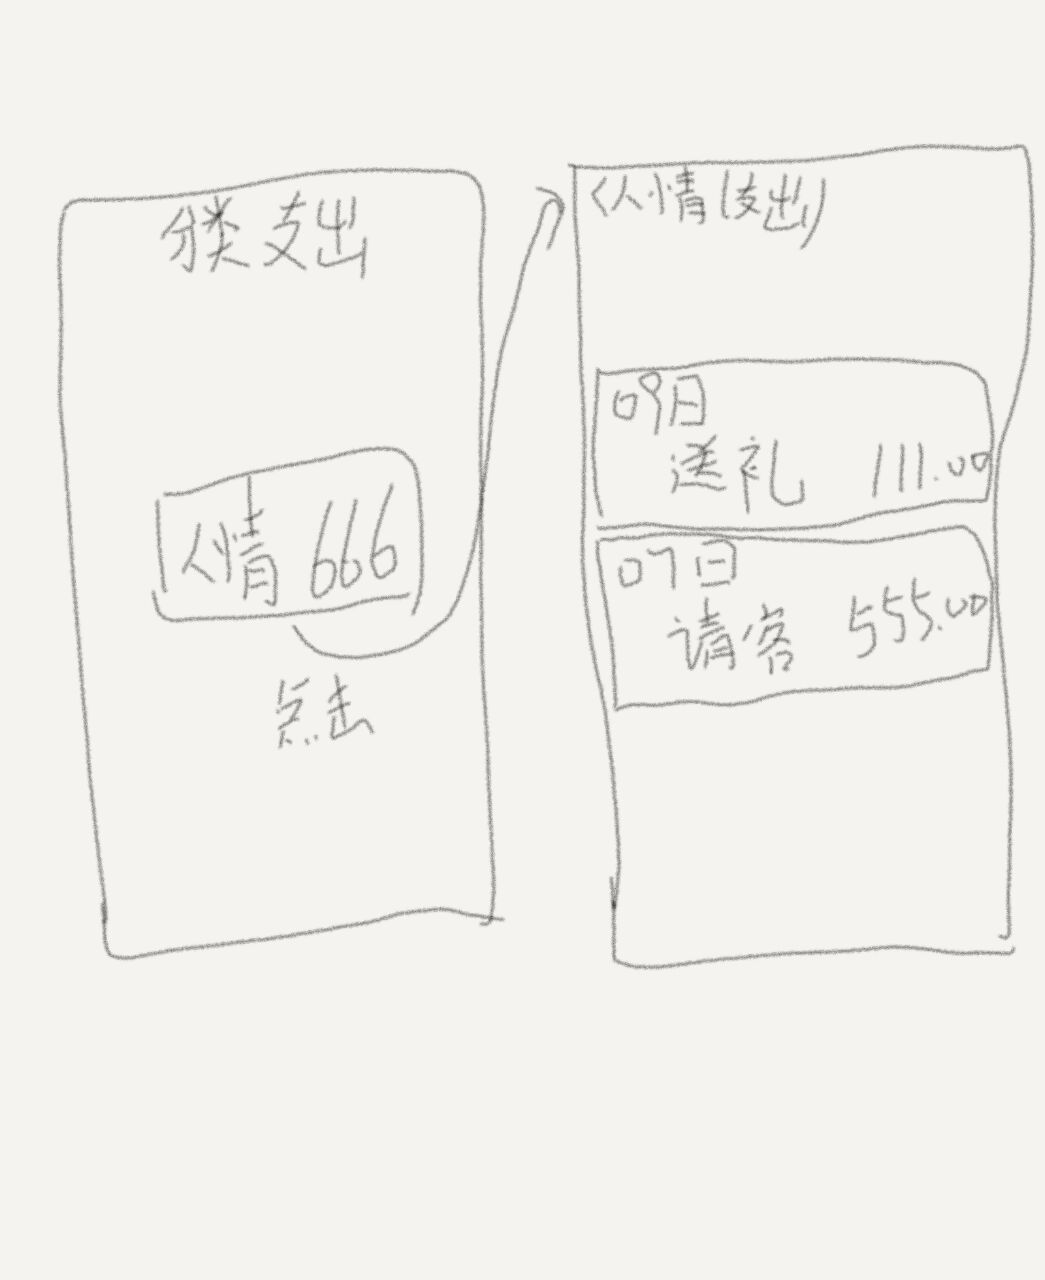 分类支出
人情 666
点击
<人情(支出)
09日
送礼 111.00
07日
请客 555.00